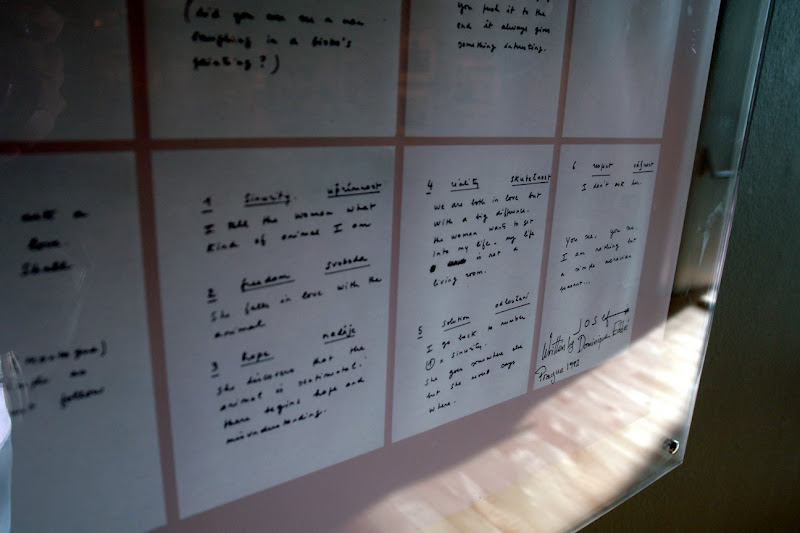 (did you ever see a man
laughing in a
painting?)
you push it to the
end it always gives
something interesting.
with a
love.
follow
1 sincerity. upřímnost
I tell the women what
kind of animal I am
2 freedom svoboda
She falls in love with the
animal
3 hope naděje
She discovers that the
animal is sentimental.
there begins hope and
misunderstanding.
4 reality skutečnost
we are both in love but
with a big difference.
the woman wants to get
into my life. my life
is not a
living room.
5 solution odloučení
I go back to number
① = sincerity.
She goes somewhere else
but she never says
where.
6 respect
I don't ask her.
You see, you see
I am nothing but
a simple moravian
peasant...
JOSef
Written by Dominique
Prague 1992